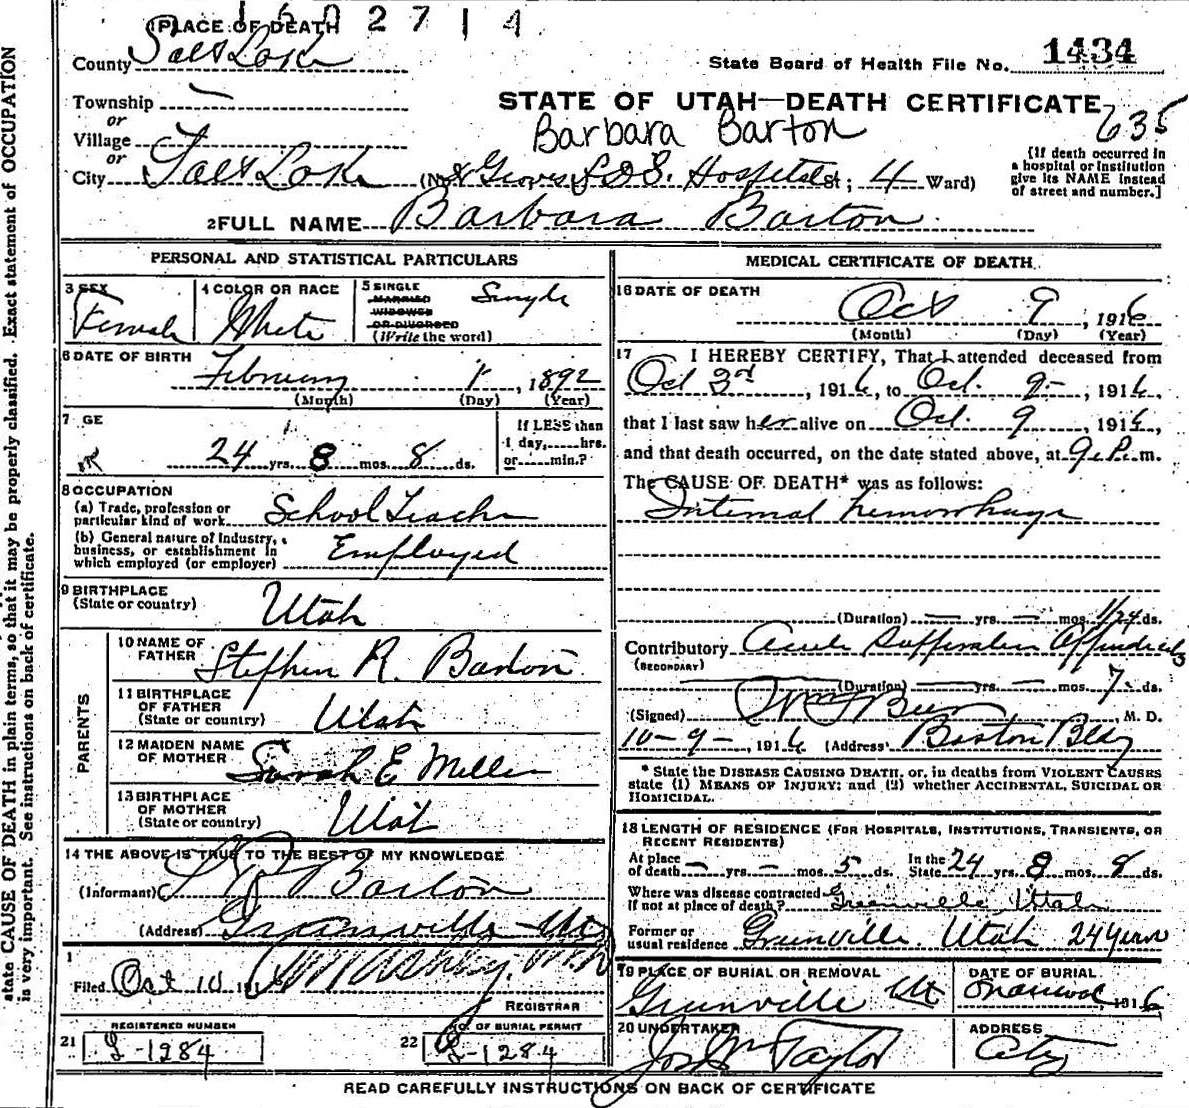 1 PLACE OF DEATH
County Salt Lake
State Board of Health File No. 1434
Township —
or
Village
or
City Salt Lake
STATE OF UTAH—DEATH CERTIFICATE
Barbara Barton
635
(No. 8 Groves L.D.S. Hospital St; 4 Ward)
[If death occurred in
a hospital or institution
give its NAME instead
of street and number.]
2 FULL NAME Barbara Barton
PERSONAL AND STATISTICAL PARTICULARS
3 SEX
Female
4 COLOR OR RACE
White
5 SINGLE
MARRIED
WIDOWED
OR DIVORCED
(Write the word)
Single
6 DATE OF BIRTH
February 1, 1892
(Month) (Day) (Year)
7 GE
24 yrs. 8 mos. 8 ds.
If LESS than
1 day, hrs.
or min.?
8 OCCUPATION
(a) Trade, profession or
particular kind of work School Teacher
(b) General nature of Industry,
business, or establishment in
which employed (or employer) Employed
9 BIRTHPLACE
(State or country) Utah
PARENTS
10 NAME OF
FATHER Stephen R. Barton
11 BIRTHPLACE
OF FATHER
(State or country) Utah
12 MAIDEN NAME
OF MOTHER Sarah E Miller
13 BIRTHPLACE
OF MOTHER
(State or country) Utah
14 THE ABOVE IS TRUE TO THE BEST OF MY KNOWLEDGE
(Informant) S R Barton
(Address) Greenville Ut
Filed Oct 10 1916
REGISTRAR
REGISTERED NUMBER
21 L-1284
NO. OF BURIAL PERMIT
22 L-1284
MEDICAL CERTIFICATE OF DEATH
16 DATE OF DEATH
Oct 9, 1916
(Month) (Day) (Year)
17 I HEREBY CERTIFY, That I attended deceased from
Oct 3rd, 1916, to Oct. 9-, 1916,
that I last saw her alive on Oct. 9, 1916,
and that death occurred, on the date stated above, at 9 P.m.
The CAUSE OF DEATH* was as follows:
Internal hemorrhage
(Duration) — yrs. — mos. 1/24 ds.
Contributory Acute Suppurative Appendicitis
(SECONDARY)
(Duration) — yrs. — mos. 7 ds.
(Signed) M. D.
10-9-, 1916 (Address) Boston Bldg
* State the DISEASE CAUSING DEATH, or, in deaths from VIOLENT CAUSES
state (1) MEANS OF INJURY; and (2) whether ACCIDENTAL, SUICIDAL OR
HOMICIDAL.
18 LENGTH OF RESIDENCE (FOR HOSPITALS, INSTITUTIONS, TRANSIENTS, OR
RECENT RESIDENTS)
At place
of death — yrs. — mos. 5 ds. In the
State 24 yrs. 8 mos. 8 ds.
Where was disease contracted
If not at place of death? Greenville, Utah
Former or
usual residence Greenville, Utah 24 years
19 PLACE OF BURIAL OR REMOVAL
Greenville Ut
DATE OF BURIAL
1916
20 UNDERTAKER
Jos Wm Taylor
ADDRESS
City
READ CAREFULLY INSTRUCTIONS ON BACK OF CERTIFICATE
state CAUSE OF DEATH in plain terms, so that it may be properly classified. Exact statement of OCCUPATION
is very important. See instructions on back of certificate.